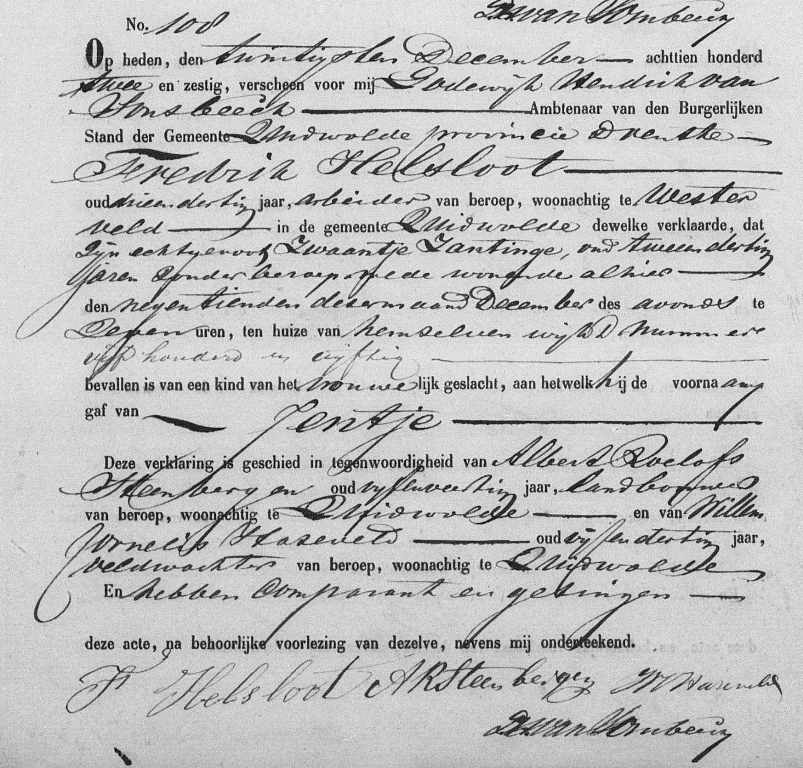 No. 108
Op heden, den twintigsten December achttien honderd
twee en zestig, verscheen voor mij Lodewijk Hendrik van
Sonsbeeck Ambtenaar van den Burgerlijken
Stand der Gemeente Zuidwolde provincie Drenthe
Fredrik Helsloot
oud drieendertig jaar, arbeider van beroep, woonachtig te Wester
veld in de gemeente Zuidwolde dewelke verklaarde, dat
Zijn echtgenoot Zwaantje Zantinge, oud tweeendertig
jaren zonder beroep mede wonende alhier
den negentienden dezer maand December des avonds te
Zeven uren, ten huize van hemzelven wijk D nummer
vijf honderd en vijftig
bevallen is van een kind van het vrouwelijk geslacht, aan hetwelk hij de voornaam
gaf van Jentje
Deze verklaring is geschied in tegenwoordigheid van Albert Roelofs
Steenbergen oud vijfenveertig jaar, landbouwer
van beroep, woonachtig te Zuidwolde en van Willem
Cornelis Haseveld oud vijfendertig jaar,
veldwachter van beroep, woonachtig te Zuidwolde
En hebben Comparant en getuigen
deze acte, na behoorlijke voorlezing van dezelve, nevens mij onderteekend.
F Helsloot ARSteenbergen